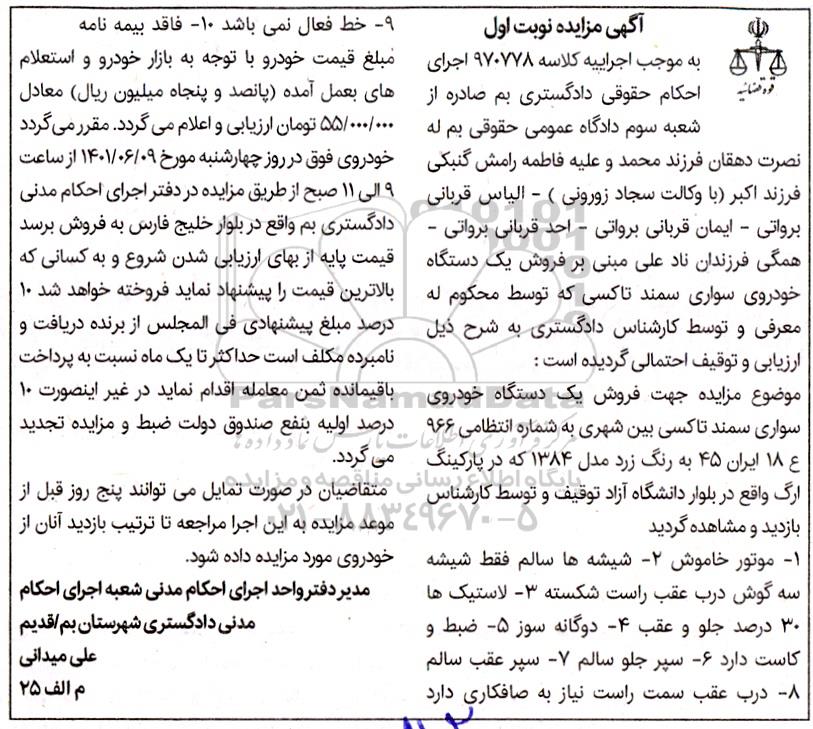 آگهی مزایده نوبت اول
قوه قضائیه
به موجب اجراییه کلاسه ۹۷۰۷۷۸ اجرای
احکام حقوقی دادگستری بم صادره از
شعبه سوم دادگاه عمومی حقوقی بم له
نصرت دهقان فرزند محمد و علیه فاطمه رامش گنبکی
فرزند اکبر (با وکالت سجاد زورونی ) - الیاس قربانی
برواتی - ایمان قربانی برواتی - احد قربانی برواتی -
همگی فرزندان ناد علی مبنی بر فروش یک دستگاه
خودروی سواری سمند تاکسی که توسط محکوم له
معرفی و توسط کارشناس دادگستری به شرح ذیل
ارزیابی و توقیف احتمالی گردیده است :
موضوع مزایده جهت فروش یک دستگاه خودروی
سواری سمند تاکسی بین شهری به شماره انتظامی ۹۶۶
ع ۱۸ ایران ۴۵ به رنگ زرد مدل ۱۳۸۴ که در پارکینگ
ارگ واقع در بلوار دانشگاه آزاد توقیف و توسط کارشناس
بازدید و مشاهده گردید
۱- موتور خاموش ۲- شیشه ها سالم فقط شیشه
سه گوش درب عقب راست شکسته ۳- لاستیک ها
۳۰ درصد جلو و عقب ۴- دوگانه سوز ۵- ضبط و
کاست دارد ۶- سپر جلو سالم ۷- سپر عقب سالم
۸- درب عقب سمت راست نیاز به صافکاری دارد
۹- خط فعال نمی باشد ۱۰- فاقد بیمه نامه
مبلغ قیمت خودرو با توجه به بازار خودرو و استعلام
های بعمل آمده (پانصد و پنجاه میلیون ریال) معادل
۵۵/۰۰۰/۰۰۰ تومان ارزیابی و اعلام می گردد. مقرر می‌گردد
خودروی فوق در روز چهارشنبه مورخ ۱۴۰۱/۰۶/۰۹ از ساعت
۹ الی ۱۱ صبح از طریق مزایده در دفتر اجرای احکام مدنی
دادگستری بم واقع در بلوار خلیج فارس به فروش برسد
قیمت پایه از بهای ارزیابی شدن شروع و به کسانی که
بالاترین قیمت را پیشنهاد نماید فروخته خواهد شد ۱۰
درصد مبلغ پیشنهادی فی المجلس از برنده دریافت و
نامبرده مکلف است حداکثر تا یک ماه نسبت به پرداخت
باقیمانده ثمن معامله اقدام نماید در غیر اینصورت ۱۰
درصد اولیه بنفع صندوق دولت ضبط و مزایده تجدید
می گردد.
متقاضیان در صورت تمایل می توانند پنج روز قبل از
موعد مزایده به این اجرا مراجعه تا ترتیب بازدید آنان از
خودروی مورد مزایده داده شود.
مدیر دفتر واحد اجرای احکام مدنی شعبه اجرای احکام
مدنی دادگستری شهرستان بم/قدیم
علی میدانی
م الف ۲۵
ParsNamadData
پایگاه اطلاع رسانی مناقصه و مزایده
۰۲۱-۸۸۳۴۹۶۷۰-۵